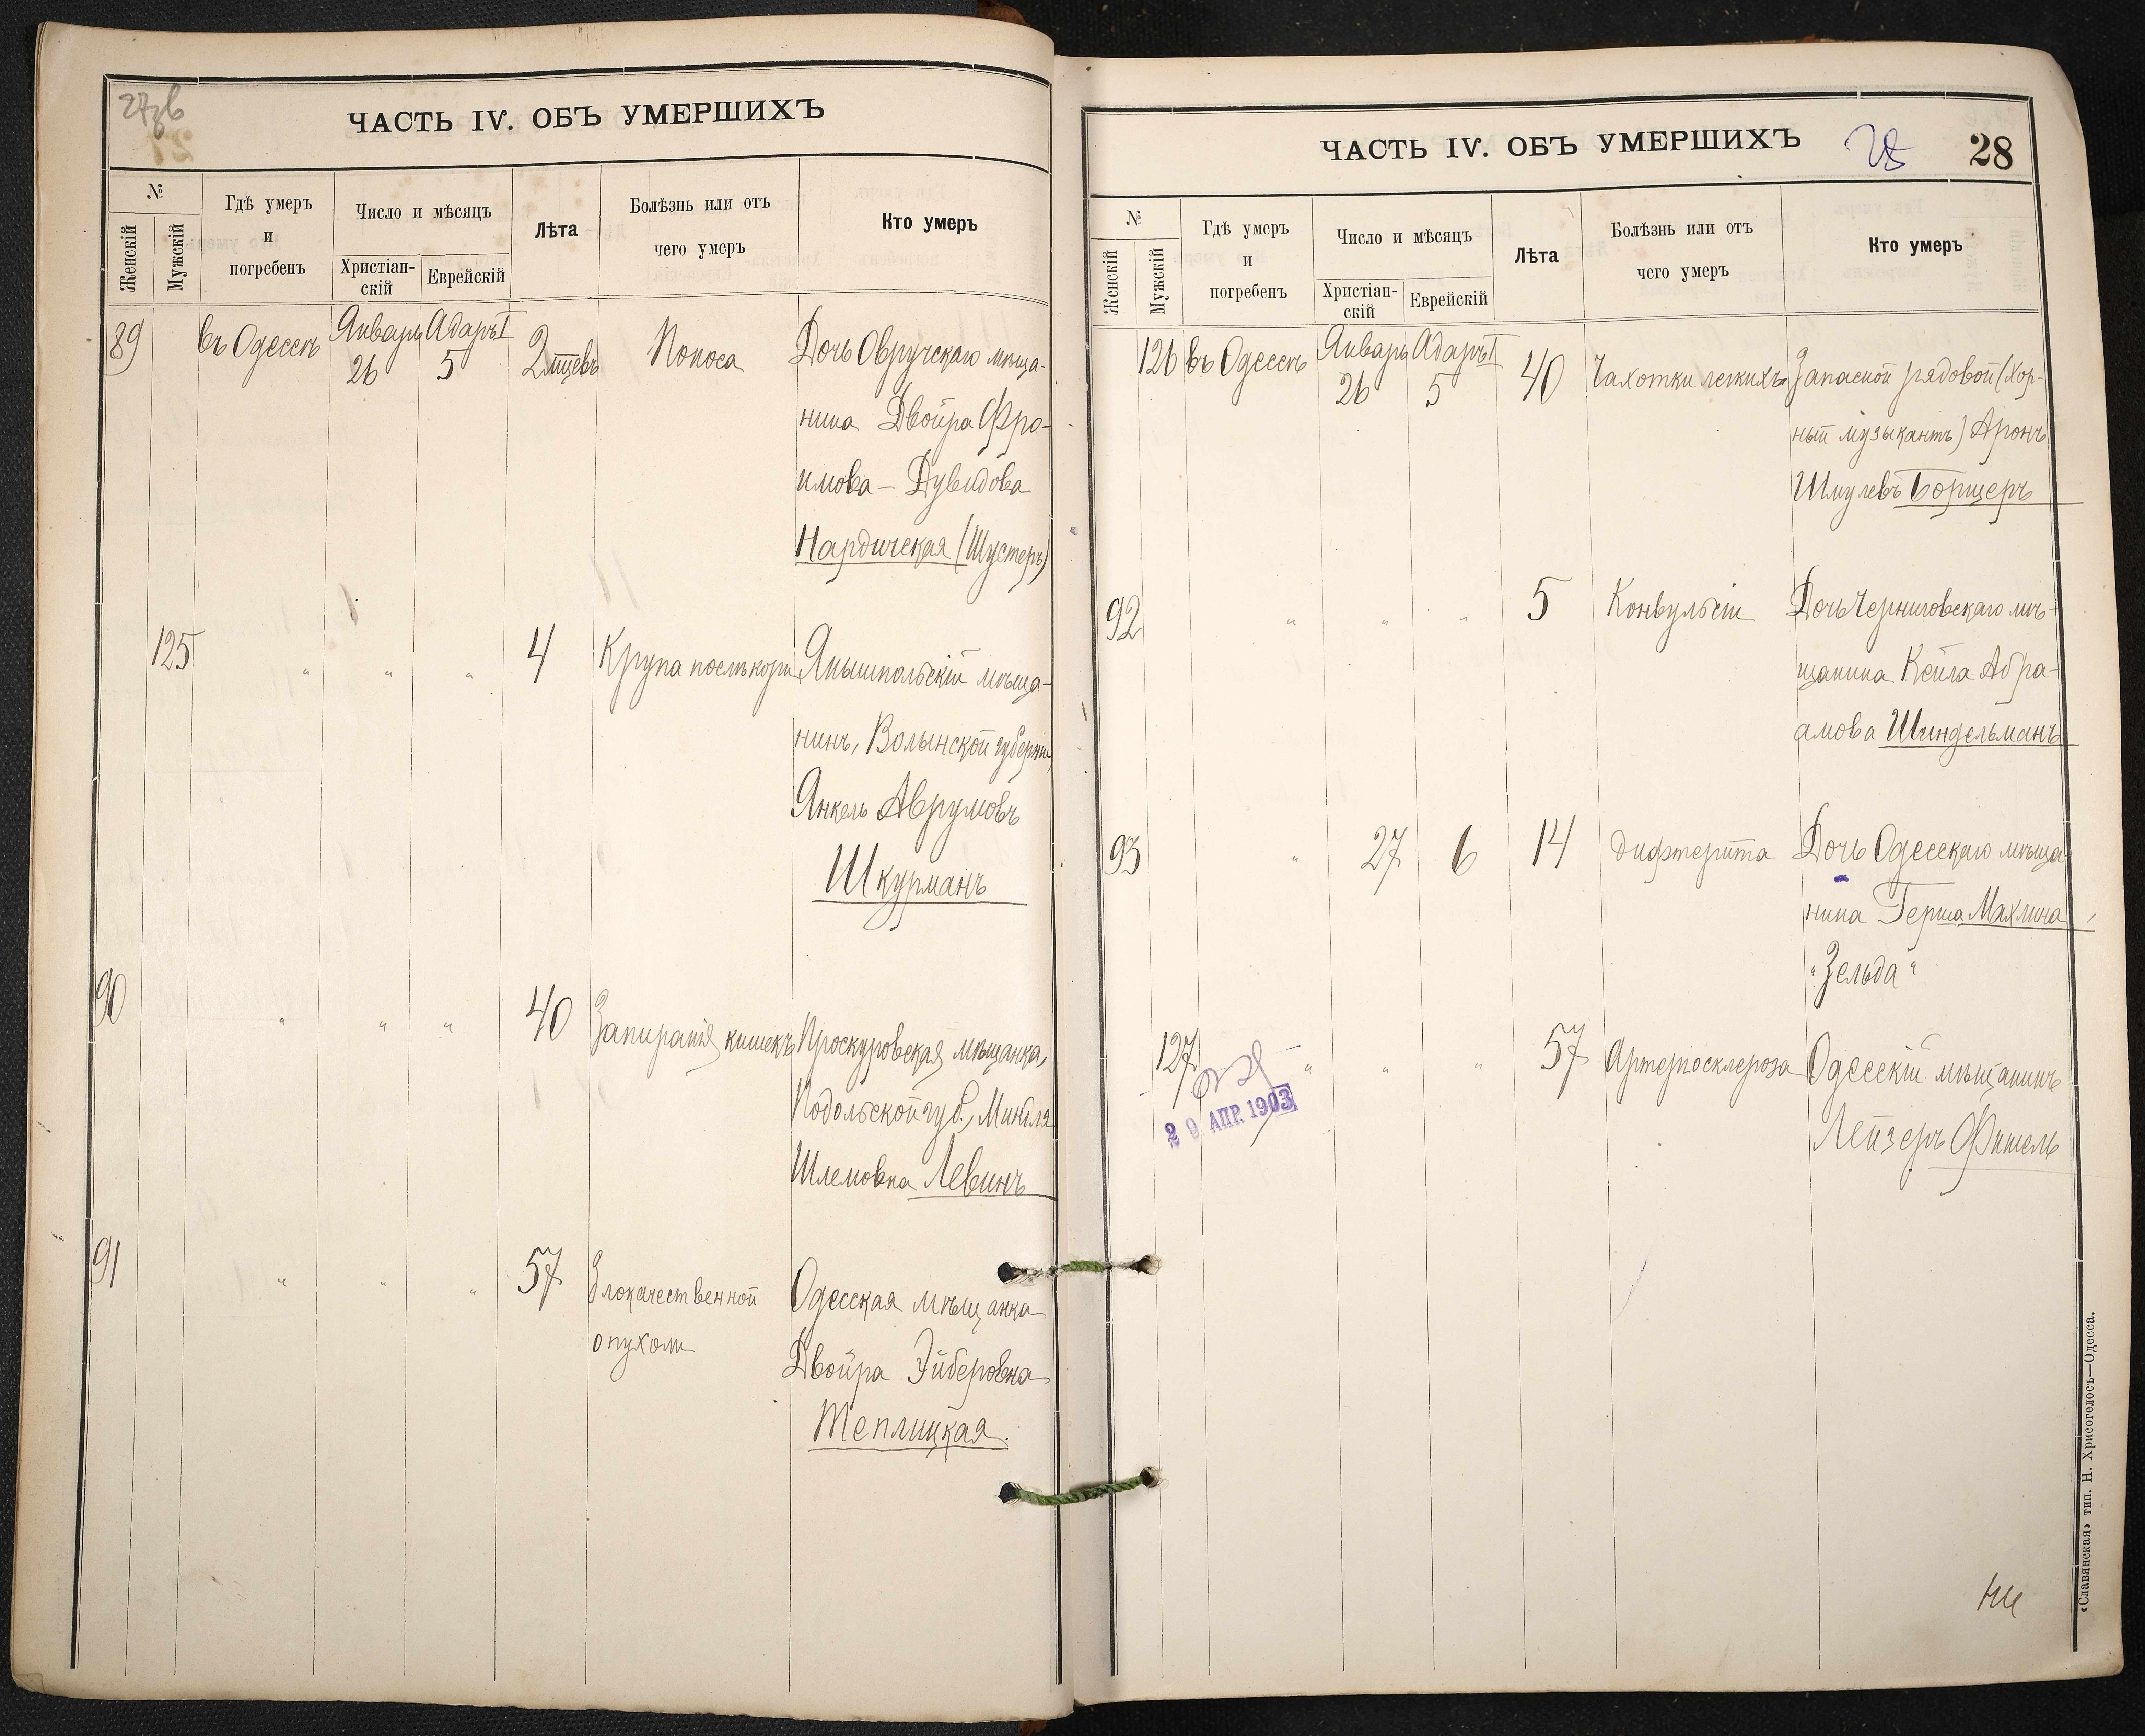 27об
ЧАСТЬ IV. ОБЪ УМЕРШИХЪ
№
Женскій
Мужскій
Гдѣ умеръ
и
погребенъ
Число и мѣсяцъ
Христіан-
скій
Еврейскій
Лѣта
Болѣзнь или отъ
чего умеръ
Кто умеръ
89 въ Одессѣ Январь 26 Адаръ I 5 2 мѣсяцевъ Поноса Дочь Овручскаго мѣща-
нина Двойра Фро-
имова - Дувидова
Нардическая (Шустеръ)
125 " " " 4 Крупа послѣ кори Янышпольскій мѣща-
нинъ, Волынской губерніи,
Янкель Аврумовъ
Шкурманъ
90 " " " 40 Запиранія кишекъ Проскуровская мѣщанка,
Подольской губ., Миндля
Шлемовна Левинъ
91 " " " 57 Злокачественной Одесская мѣщанка
опухоли Двойра Эйберовна
Теплицкая.
ЧАСТЬ IV. ОБЪ УМЕРШИХЪ
28
28
№
Женскій
Мужскій
Гдѣ умеръ
и
погребенъ
Число и мѣсяцъ
Христіан-
скій
Еврейскій
Лѣта
Болѣзнь или отъ
чего умеръ
Кто умеръ
126 въ Одессѣ Январь 26 Адаръ I 5 40 Чахотки легкихъ Запасной рядовой (хор-
ный музыкантъ) Аронъ
Шмулевъ Борщеръ
92 " " " 5 Конвульсіи Дочь Черниговскаго мѣ-
щанина Кейла Абра-
амова Шиндельманъ
93 " 27 6 14 Дифтерита Дочь Одесскаго мѣща-
нина Герша Махлина,
"Зельда"
127 " " " 57 Артеріосклероза Одесскій мѣщанинъ
Лейзеръ Фишель
29 АПР. 1903
«Славянская» тип. Н. Хрисогелосъ—Одесса.